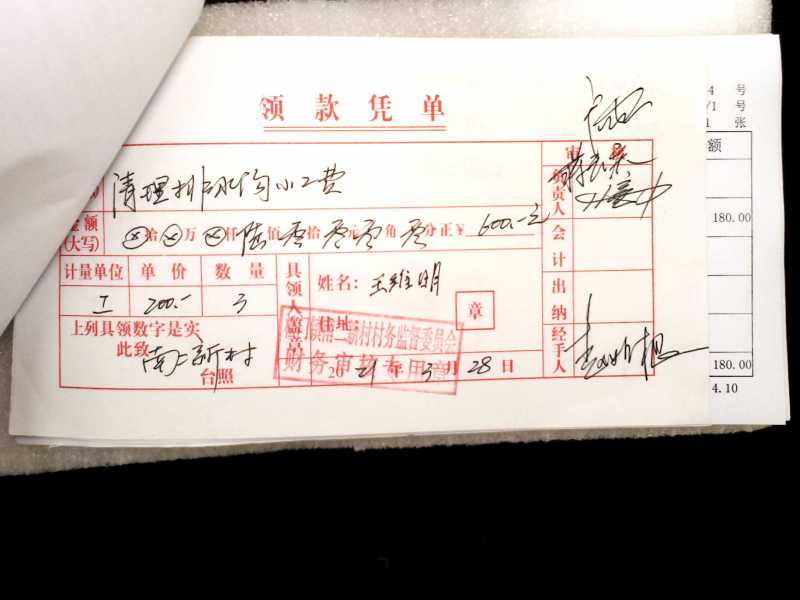 领款凭单
4 号
/1 号
1 张
额
清理排水沟小工费
审
金额(大写) ⊗拾⊗万⊗仟陆佰零拾零元零角零分正¥600.-元
负责人
180.00
会计
计量单位 单价 数量
具领人盖章
姓名:王维明
工 200.- 3
住地:
章
出纳
上列具领数字是实
此致
南二新村
台照
新村村务监督委员会
财务审核专用章
2021年3月28日
经手人
180.00
4.10